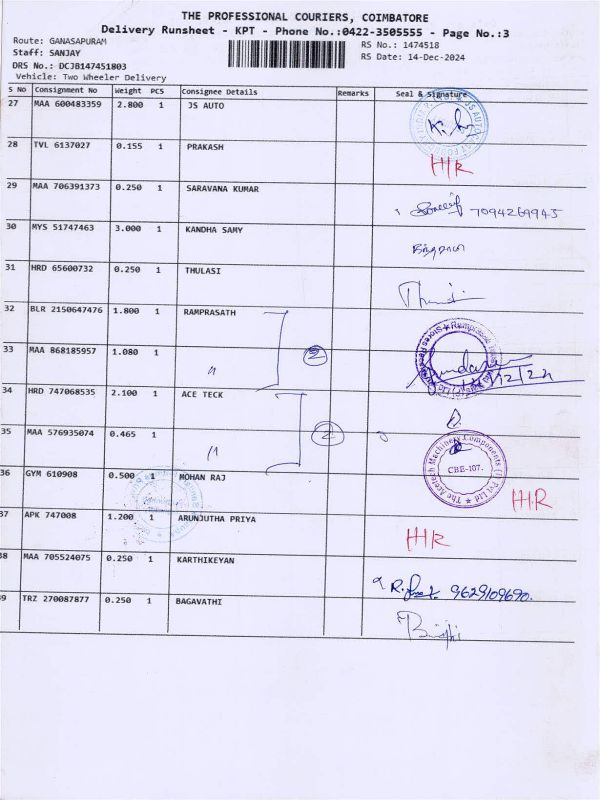 THE PROFESSIONAL COURIERS, COIMBATORE
Delivery Runsheet - KPT - Phone No.:0422-3505555 - Page No.:3
Route: GANASAPURAM
RS No.: 1474518
Staff: SANJAY
RS Date: 14-Dec-2024
DRS No.: DCJB147451803
Vehicle: Two Wheeler Delivery
S No Consignment No Weight PCS Consignee Details Remarks Seal & Signature
27 MAA 600483359 2.800 1 JS AUTO
28 TVL 6137027 0.155 1 PRAKASH
H/R
29 MAA 706391373 0.250 1 SARAVANA KUMAR
7094269945
30 MYS 51747463 3.000 1 KANDHA SAMY
31 HRD 65600732 0.250 1 THULASI
32 BLR 2150647476 1.800 1 RAMPRASATH
33 MAA 868185957 1.080 1 〃 2
34 HRD 747068535 2.100 1 ACE TECK
35 MAA 576935074 0.465 1 〃 2
The Acetech Machinery Components (I) Pvt Ltd
CBE-107.
36 GYM 610908 0.500 1 MOHAN RAJ
H.R
37 APK 747008 1.200 1 ARUNJUTHA PRIYA
H/R
38 MAA 705524075 0.250 1 KARTHIKEYAN
9629109690.
39 TRZ 270087877 0.250 1 BAGAVATHI